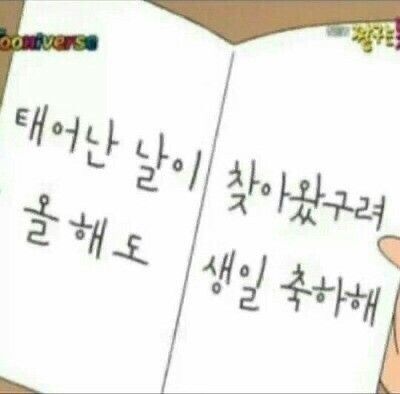 Tooniverse
짱구는
태어난 날이 찾아왔구려
올해도 생일 축하해